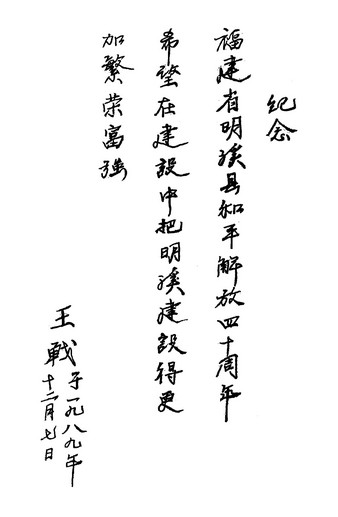 纪念
福建省明溪县和平解放四十周年
希望在建设中把明溪建设得更
加繁荣富强
王战于一九八九年
十二月七日